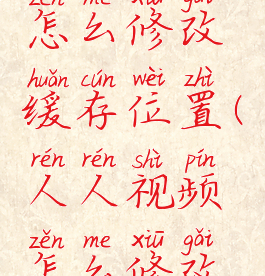 zěn me xiū gǎi
怎么修改
huǎn cún wèi zhì
缓存位置(
rén rén shì pín
人人视频
zěn me xiū gǎi
怎么修改